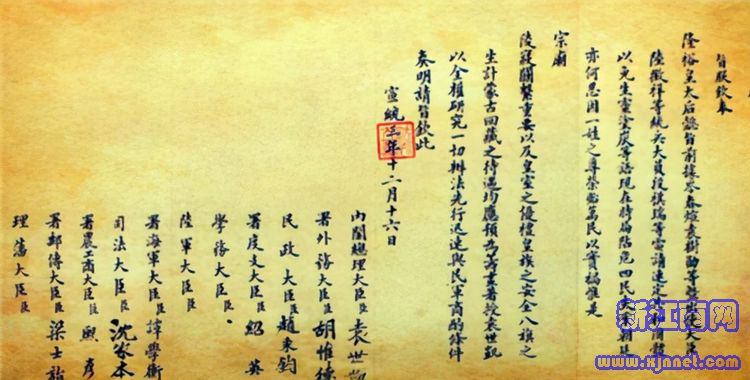 旨朕欽奉
隆裕皇太后懿旨前據岑春煊袁樹勛等暨出使大臣
陸徵祥等統兵大員段祺瑞等電請速定共和國體
以免生靈塗炭等語現在時局阽危四民失業朝廷
亦何忍因一姓之尊榮貽萬民以實禍惟是
宗廟
陵寢關繫重要以及皇室之優禮皇族之安全八旗之
生計蒙古回藏之待遇均應預為籌畫著授袁世凱
以全權研究一切辦法先行迅速與民軍商酌條件
奏明請旨欽此
宣統三年十二月十六日
內閣總理大臣臣袁世凱
署外務大臣臣胡惟德
民政大臣臣趙秉鈞
署度支大臣臣紹英
學務大臣臣
陸軍大臣臣
署海軍大臣臣譚學衡
司法大臣臣沈家本
署農工商大臣臣熙彥
署郵傳大臣臣梁士詒
理藩大臣臣
新江南网
www.xjnnet.com